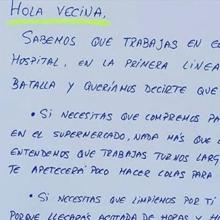 HOLA VECINA,
SABEMOS QUE TRABAJAS EN EL
HOSPITAL, EN LA PRIMERA LINEA
BATALLA Y QUERÍAMOS DECIRTE QUE
• SI NECESITAS QUE COMPREMOS PA
EN EL SUPERMERCADO, NADA MÁS QUE
ENTENDEMOS QUE TRABAJAS TURNOS LARG
TE APETECERÁ POCO HACER COLAS PARA
• SI NECESITAS QUE LIMPIEMOS POR TI
PORQUE LLEGARÁS AGOTADA DE HORAS Y H